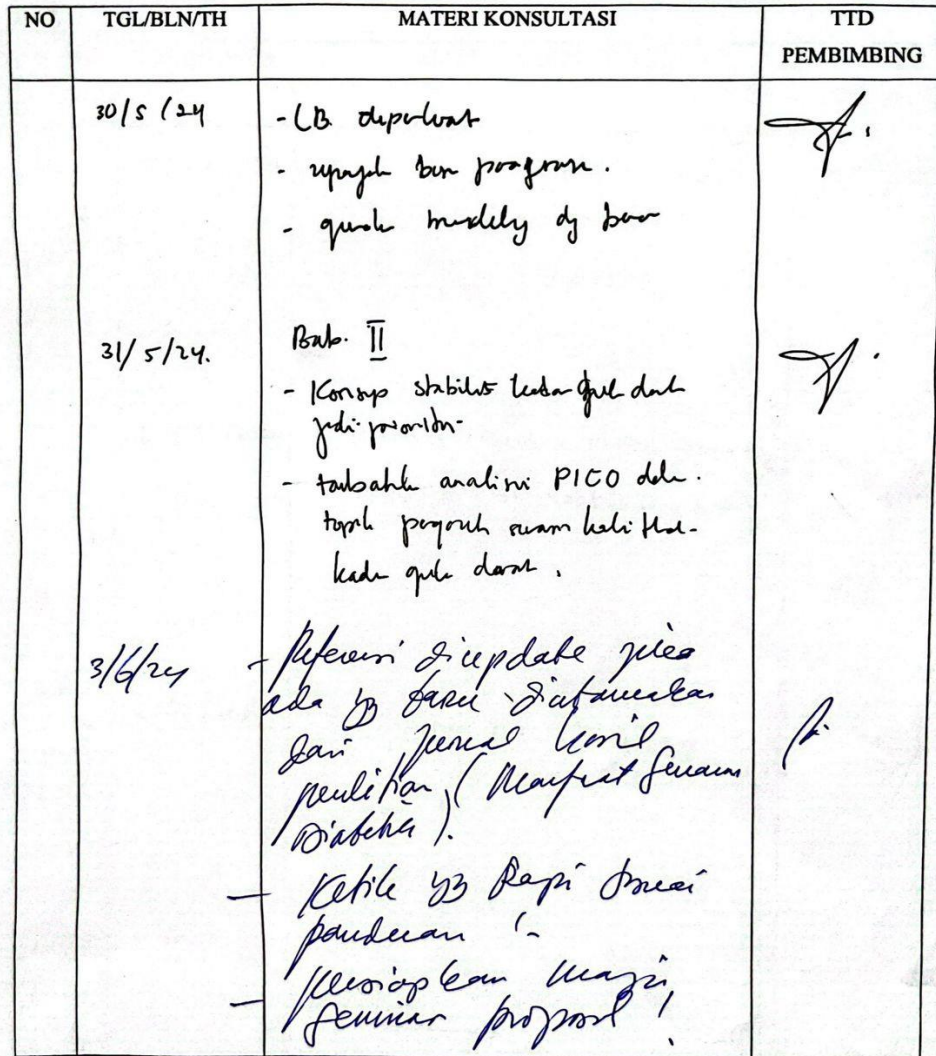 NO TGL/BLN/TH MATERI KONSULTASI TTD
PEMBIMBING
30/5/24 - LB diperkuat
-
- dg
31/5/24. Bab. II
- Konsep stabilitas kadar gula darah
jadi prioritas
- tambahkan analisis PICO dlm.
topik pengaruh senam kaki thd-
kadar gula darah.
3/6/24 - Referensi diupdate jika
ada yg baru diutamakan
dari jurnal hasil
penelitian, (Manfaat Senam
Diabetes).
- Ketik yg Rapi sesuai
panduan !
- persiapkan maju
Seminar proposal !